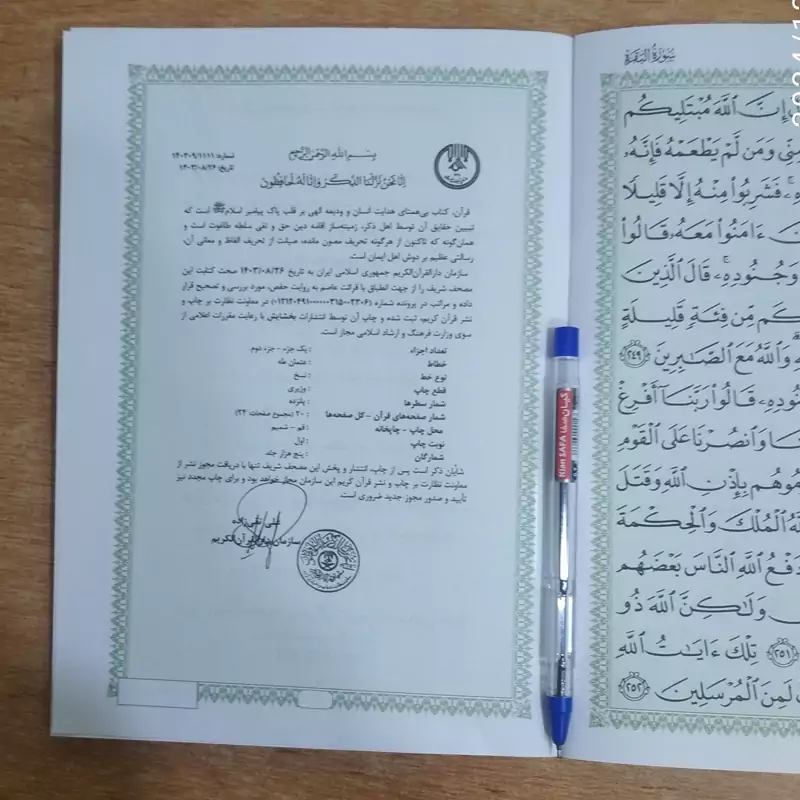 بسم الله الرحمن الرحیم
شماره: ۱۴۰۳۰۹/۱۱۱۱
تاریخ: ۱۴۰۳/۰۸/۲۶
انا نحن نزلنا الذکر و انا له لحافظون
قرآن، کتاب بی‌همتای هدایت انسان و ودیعه الهی بر قلب پاک پیامبر اسلامﷺ است که
تبیین حقایق آن توسط اهل ذکر، زمینه‌ساز اقامه دین حق و نفی سلطه طاغوت است و
همان‌گونه که تاکنون از هرگونه تحریف مصون مانده، صیانت از تحریف الفاظ و معانی آن،
رسالتی عظیم بر دوش اهل ایمان است.
سازمان دارالقرآن‌الکریم جمهوری اسلامی ایران به تاریخ ۱۴۰۳/۰۸/۲۶ صحت کتابت این
مصحف شریف را از جهت انطباق با قرائت عاصم به روایت حفص، مورد بررسی و تصحیح قرار
داده و مراتب در پرونده شماره
در معاونت نظارت بر چاپ و
نشر قرآن کریم، ثبت شده و چاپ آن توسط انتشارات بخشایش با رعایت مقررات اعلامی از
سوی وزارت فرهنگ و ارشاد اسلامی مجاز است.
تعداد اجزاء : یک جزء - جزء دوم
خطاط : عثمان طه
نوع خط : نسخ
قطع چاپ : وزیری
شمار سطرها : پانزده
شمار صفحه‌های قرآن - کل صفحه‌ها : ۲۰ (مجموع صفحات: ۲۴)
محل چاپ - چاپخانه : قم - شمیم
نوبت چاپ : اول
شمارگان : پنج هزار جلد
شایان ذکر است پس از چاپ، انتشار و پخش این مصحف شریف تنها با دریافت مجوز نشر از
معاونت نظارت بر چاپ و نشر قرآن کریم این سازمان مجاز خواهد بود و برای چاپ مجدد نیز
تأیید و صدور مجوز جدید ضروری است.
علی تقی‌زاده
سازمان دارالقرآن‌الکریم
کیان‌صفا
Kian SAFA
سورة البقرة
إِنَّ ٱللَّهَ مُبْتَلِيكُم
مِنِّى وَمَن لَّمْ يَطْعَمْهُ فَإِنَّهُۥ
فَشَرِبُوا۟ مِنْهُ إِلَّا قَلِيلًا
ءَامَنُوا۟ مَعَهُۥ قَالُوا۟
وَجُنُودِهِۦ ۚ قَالَ ٱلَّذِينَ
كَم مِّن فِئَةٍ قَلِيلَةٍ
وَٱللَّهُ مَعَ ٱلصَّٰبِرِينَ ﴿٢٤٩﴾
قَالُوا۟ رَبَّنَآ أَفْرِغْ
وَٱنصُرْنَا عَلَى ٱلْقَوْمِ
بِإِذْنِ ٱللَّهِ وَقَتَلَ
ٱلْمُلْكَ وَٱلْحِكْمَةَ
دَفْعُ ٱللَّهِ ٱلنَّاسَ بَعْضَهُم
وَلَٰكِنَّ ٱللَّهَ ذُو
﴿٢٥١﴾ تِلْكَ ءَايَٰتُ ٱللَّهِ
لَمِنَ ٱلْمُرْسَلِينَ ﴿٢٥٢﴾